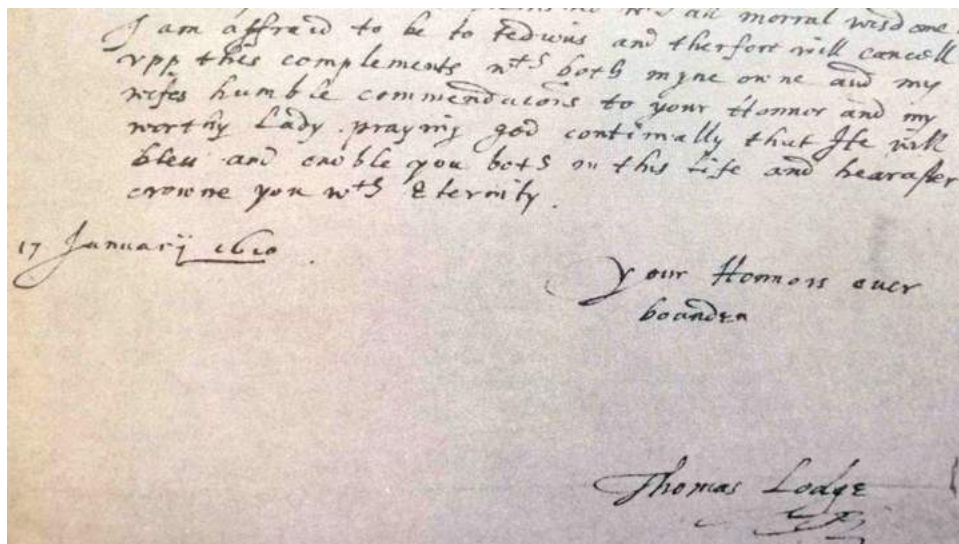 all morral wisdome
I am affraid to be to tedious and therfore will cancell
vpp this complements wth both myne owne and my
wifes humble commendacons to your Honnor and my
worthy Lady. praying god continually that He will
bless and enoble you both in this Life and hearafter
crowne you wth Eternity.
17 January 1610.
your Honnors euer
bounden
Thomas Lodge